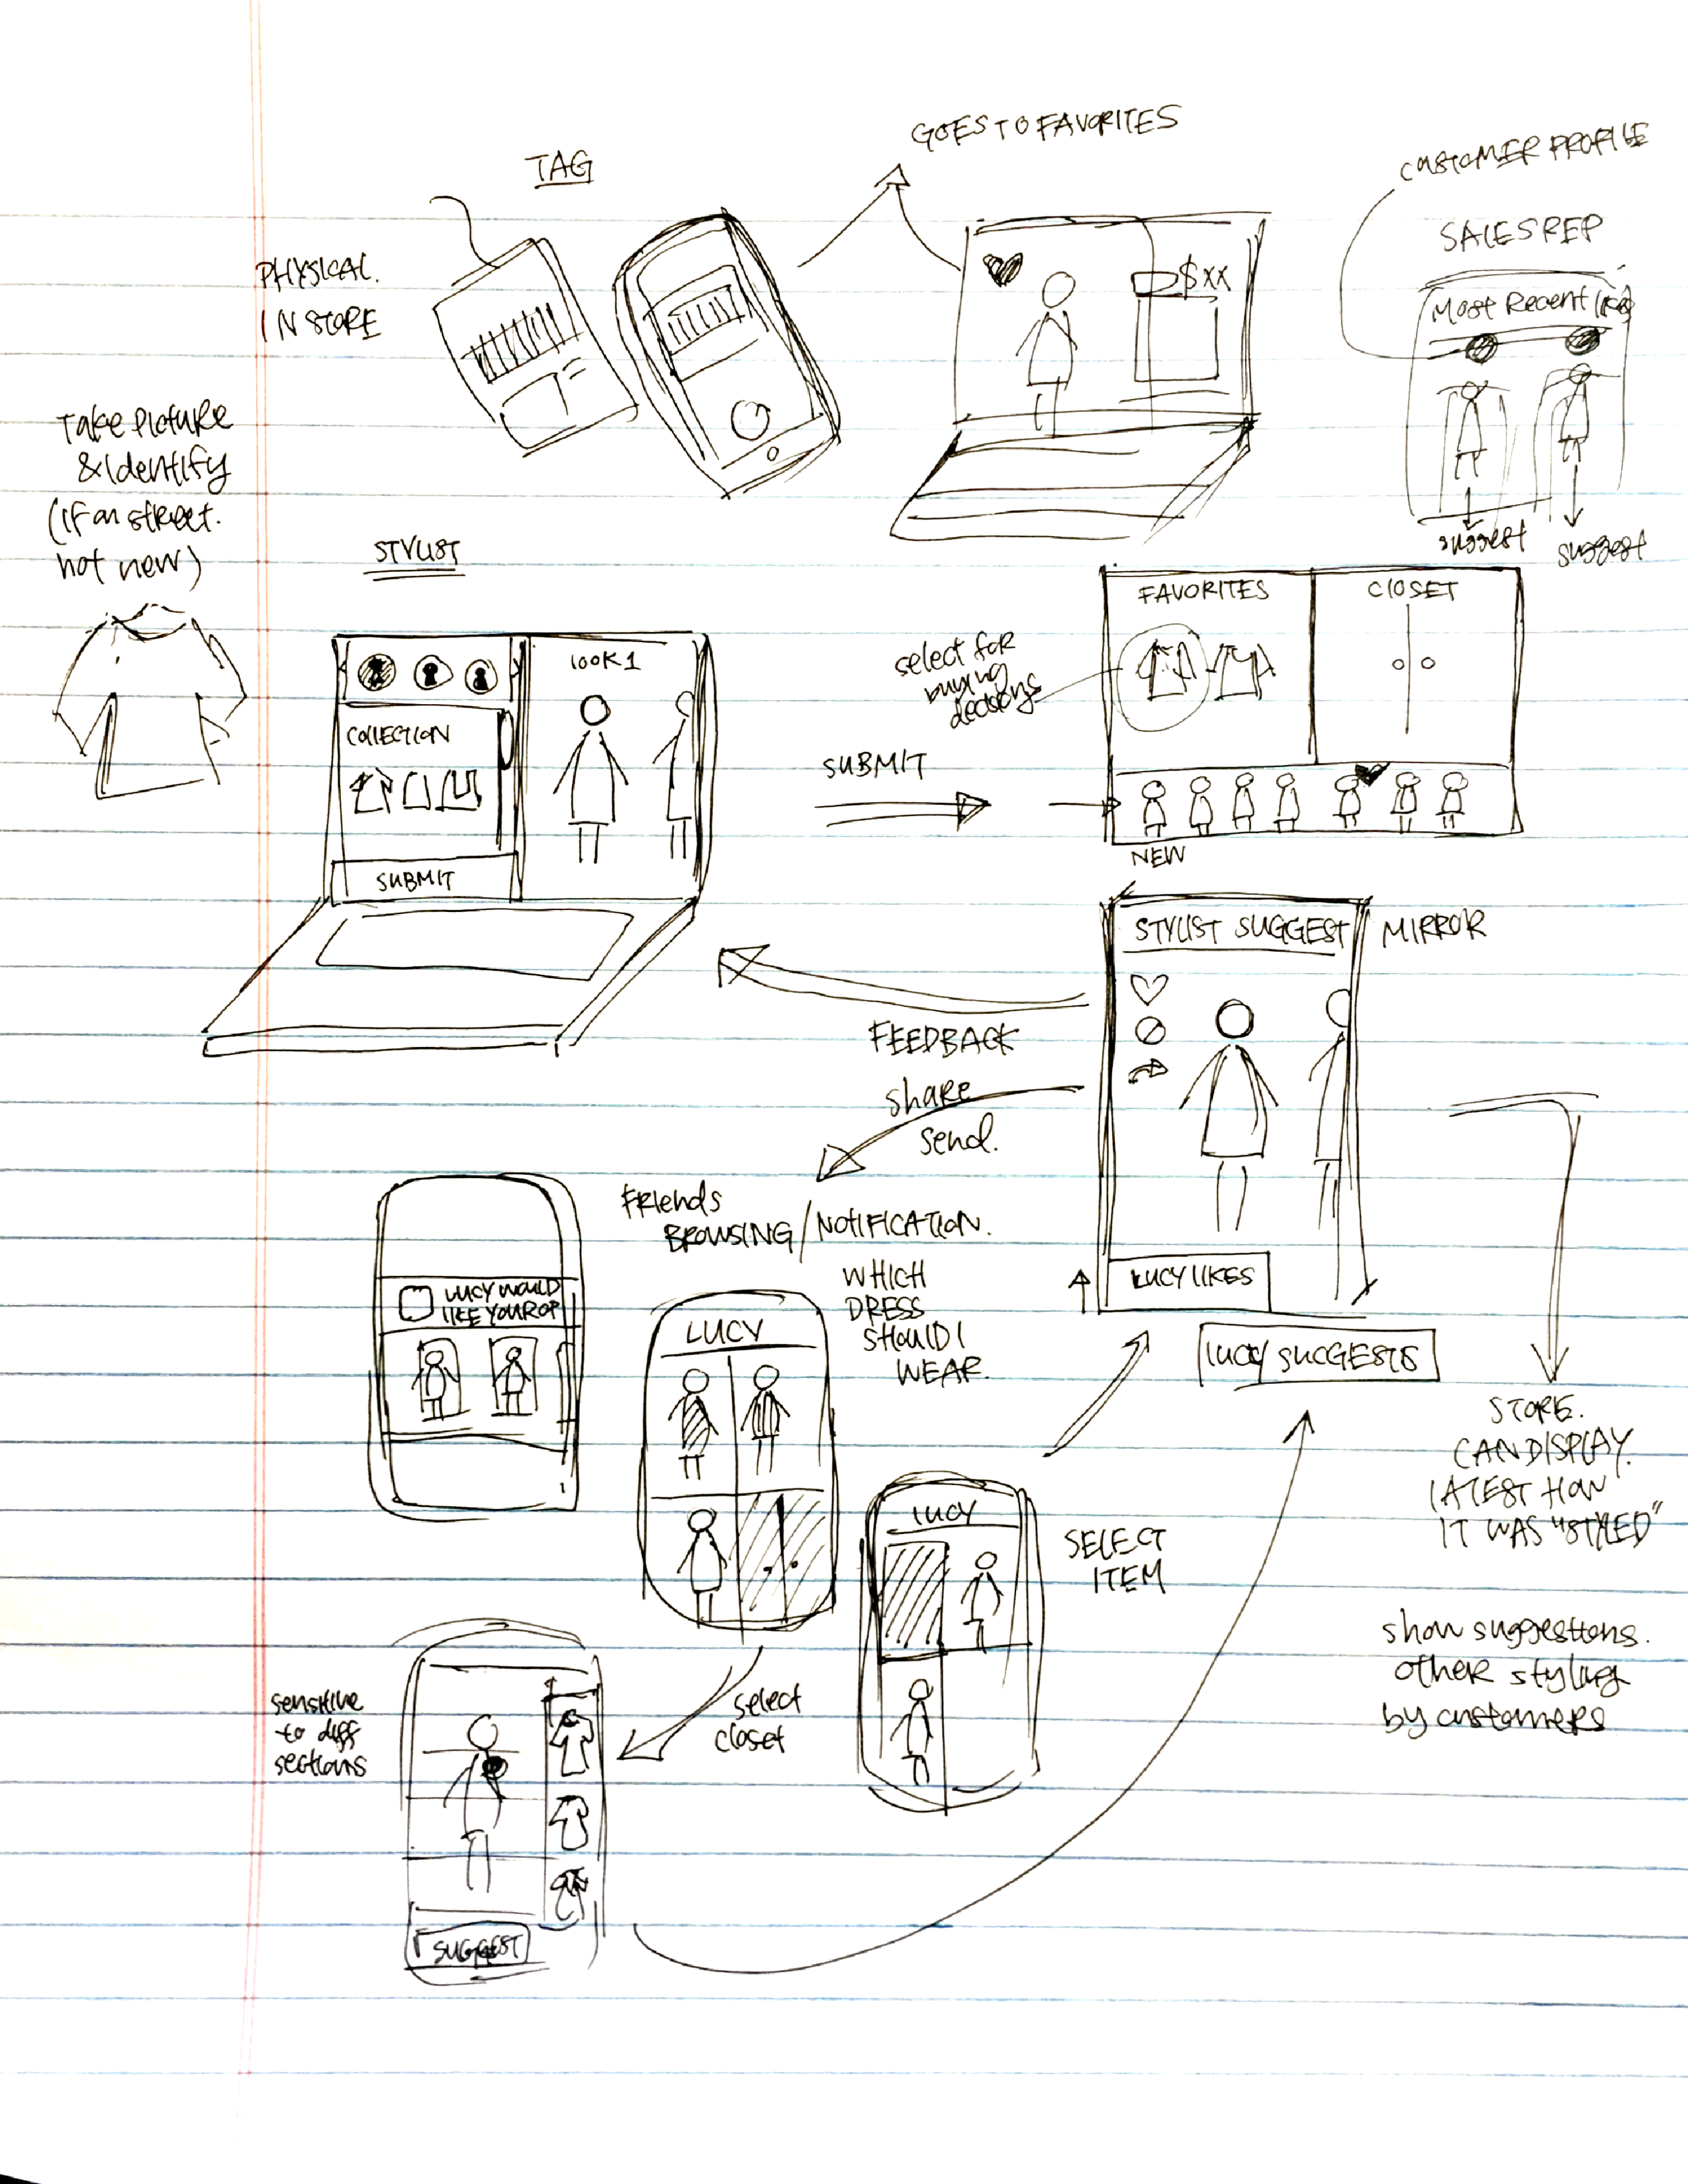 GOES TO FAVORITES
CUSTOMER PROFILE
TAG
SALES REP
PHYSICAL.
IN STORE
$XX
Most Recent likes
Take Picture
& identify
(if on street.
not new)
suggest
suggest
STYLIST
FAVORITES
CLOSET
LOOK 1
select for
buying
decisions
COLLECTION
SUBMIT
SUBMIT
NEW
STYLIST SUGGEST
MIRROR
FEEDBACK
share
send.
Friends
BROWSING/NOTIFICATION.
LUCY WOULD
LIKE YOUR OP
WHICH
DRESS
SHOULD I
WEAR.
LUCY LIKES
LUCY
LUCY SUGGESTS
STORE.
CAN DISPLAY.
LATEST HOW
IT WAS "STYLED"
LUCY
SELECT
ITEM
show suggestions.
other styling
by customers
sensitive
to diff
sections
select
closet
SUGGEST